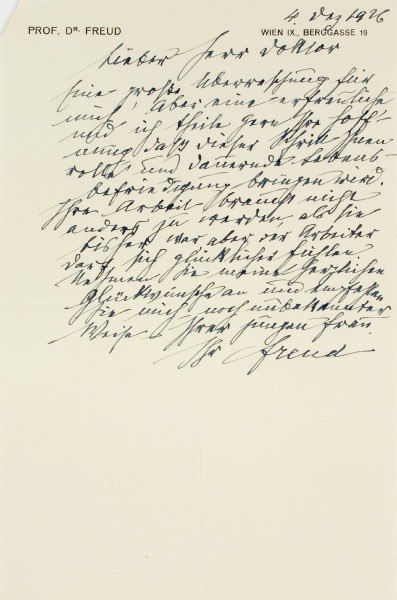 4. Dez 1926
PROF. DR. FREUD
WIEN IX., BERGGASSE 19
Lieber Herr Doktor
Eine große Überraschung für
mich! Aber eine erfreuliche
und ich theile gern Ihre Hoff-
nung daß dieser Schritt Ihnen
volle und dauernde Lebens-
befriedigung bringen wird.
Ihre Arbeit braucht nicht
anders zu werden als sie
bisher war aber der Arbeiter
darf sich glücklicher fühlen
Nehmen Sie meine herzlichen
Glückwünsche an und empfehlen
Sie mich noch unbekannter
Weise Ihrer jungen Frau.
Ihr Freud